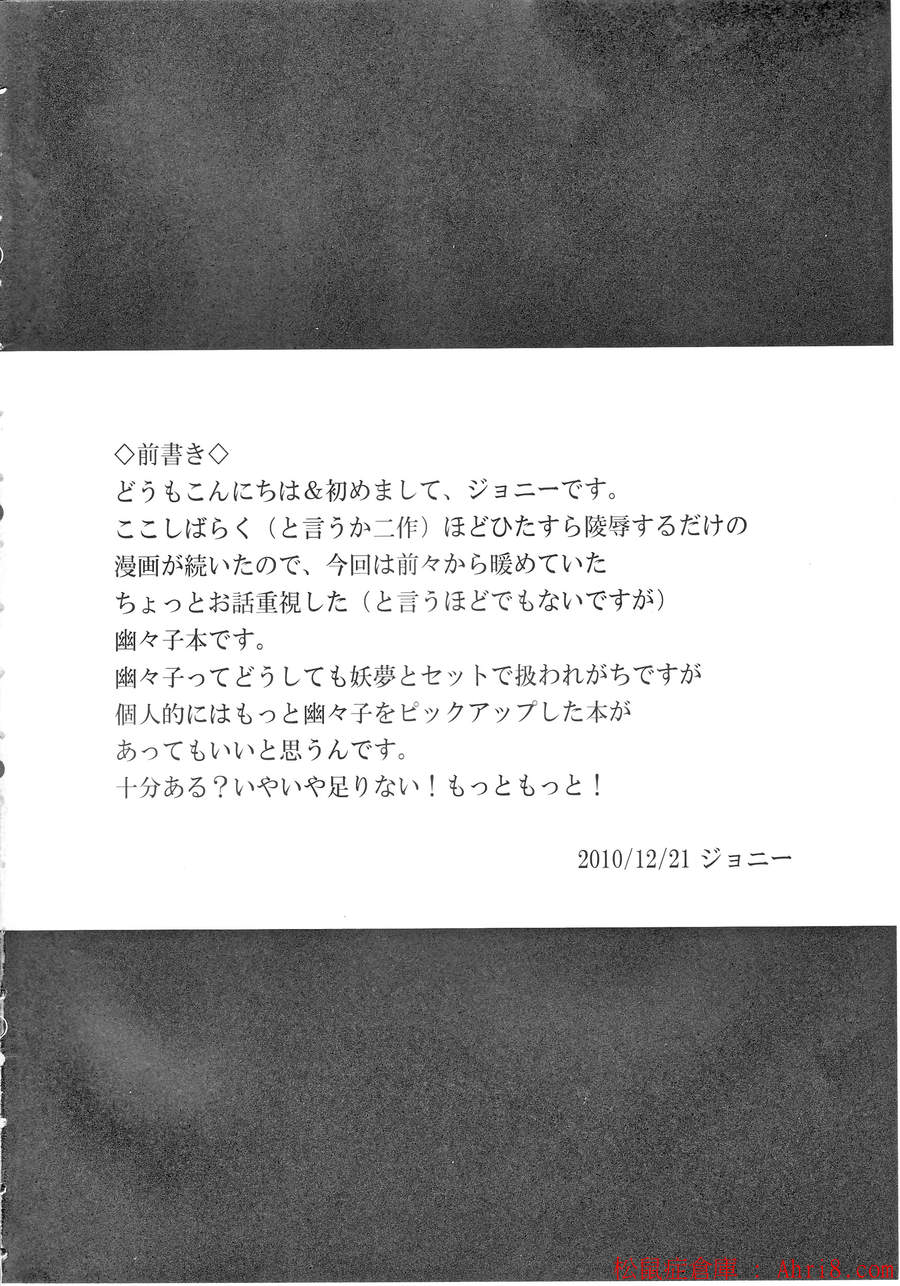 ◇前書き◇
どうもこんにちは＆初めまして、ジョニーです。
ここしばらく（と言うか二作）ほどひたすら陵辱するだけの
漫画が続いたので、今回は前々から暖めていた
ちょっとお話重視した（と言うほどでもないですが）
幽々子本です。
幽々子ってどうしても妖夢とセットで扱われがちですが
個人的にはもっと幽々子をピックアップした本が
あってもいいと思うんです。
十分ある？いやいや足りない！もっともっと！
2010/12/21 ジョニー
: Ahri8.com